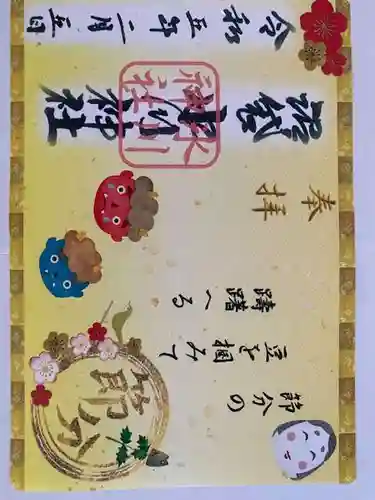 奉拝
沼袋
氷川神社
氷川神社
令和五年二月三日
節分の
豆を掴みて
躊躇へる
節分